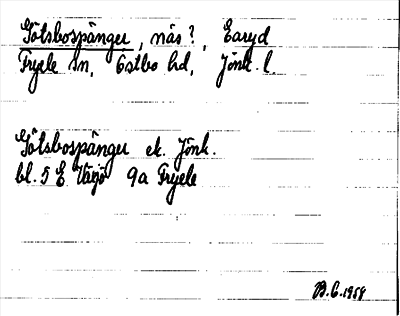 Götsbospänger, näs?, Earyd
Fryele sn, Östbo hd, Jönk. l.
Götsbospänger ek. Jönk.
bl. 5 E Värjö 9a Fryele
B.G. 1959